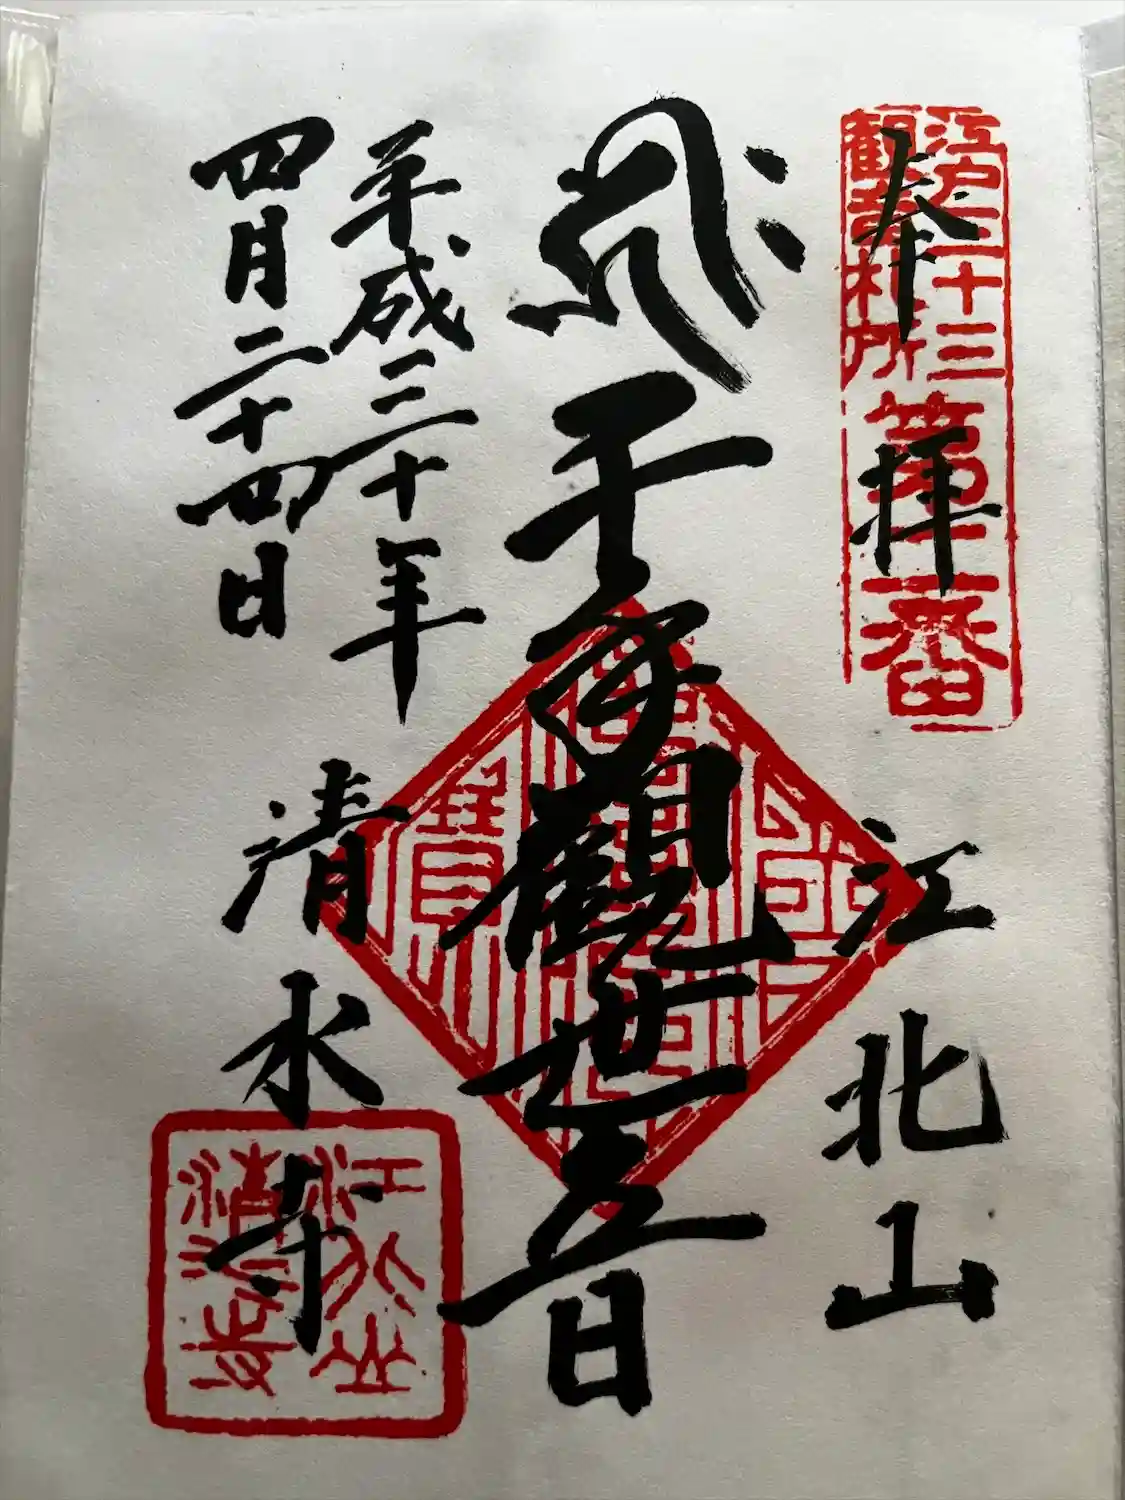 奉拝
江戸三十三
観音札所
第二番
江北山
千手観世音
平成三十年
四月二十四日
清水寺
江北山
清水寺